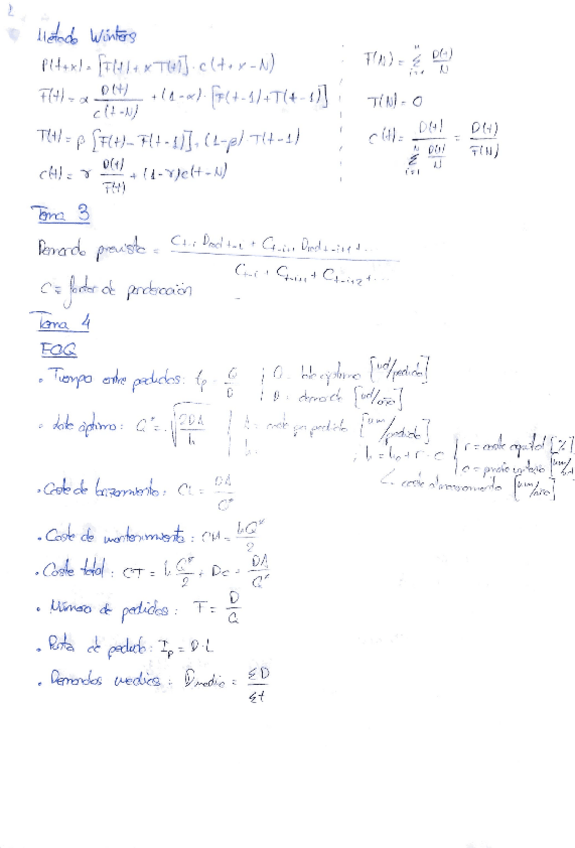 Método Winters
P(t+x) = [F(t) + x T(t)] · c(t+x-N)
F(t) = α D(t)/c(t-N) + (1-α) · [F(t-1) + T(t-1)]
T(t) = β [F(t) - F(t-1)] + (1-β) T(t-1)
c(t) = γ D(t)/F(t) + (1-γ)c(t-N)
F(N) = Σ D(t)/N
T(N) = 0
c(t) = D(t)/(Σ D(t)/N) = D(t)/F(N)
Tema 3
Demanda prevista =
C = factor de ponderación
Tema 4
EOQ
· Tiempo entre pedidos: tp = Q/D
Q = lote óptimo [ud/pedido]
D = demanda [ud/año]
· Lote óptimo: Q* = √(2DA/h)
A = coste por pedido [um/pedido]
h = h0 + r · c
r = coste capital [%]
c = precio
coste almacenamiento [um/año]
· Coste de lanzamiento: CL = DA/Q*
· Coste de mantenimiento: CM = hQ*/2
· Coste total: CT = h Q*/2 + Dc + DA/Q*
· Número de pedidos: T = D/Q
· Punto de pedido: Ip = D·L
· Demandas medias: Dmedia = ΣD/Σt